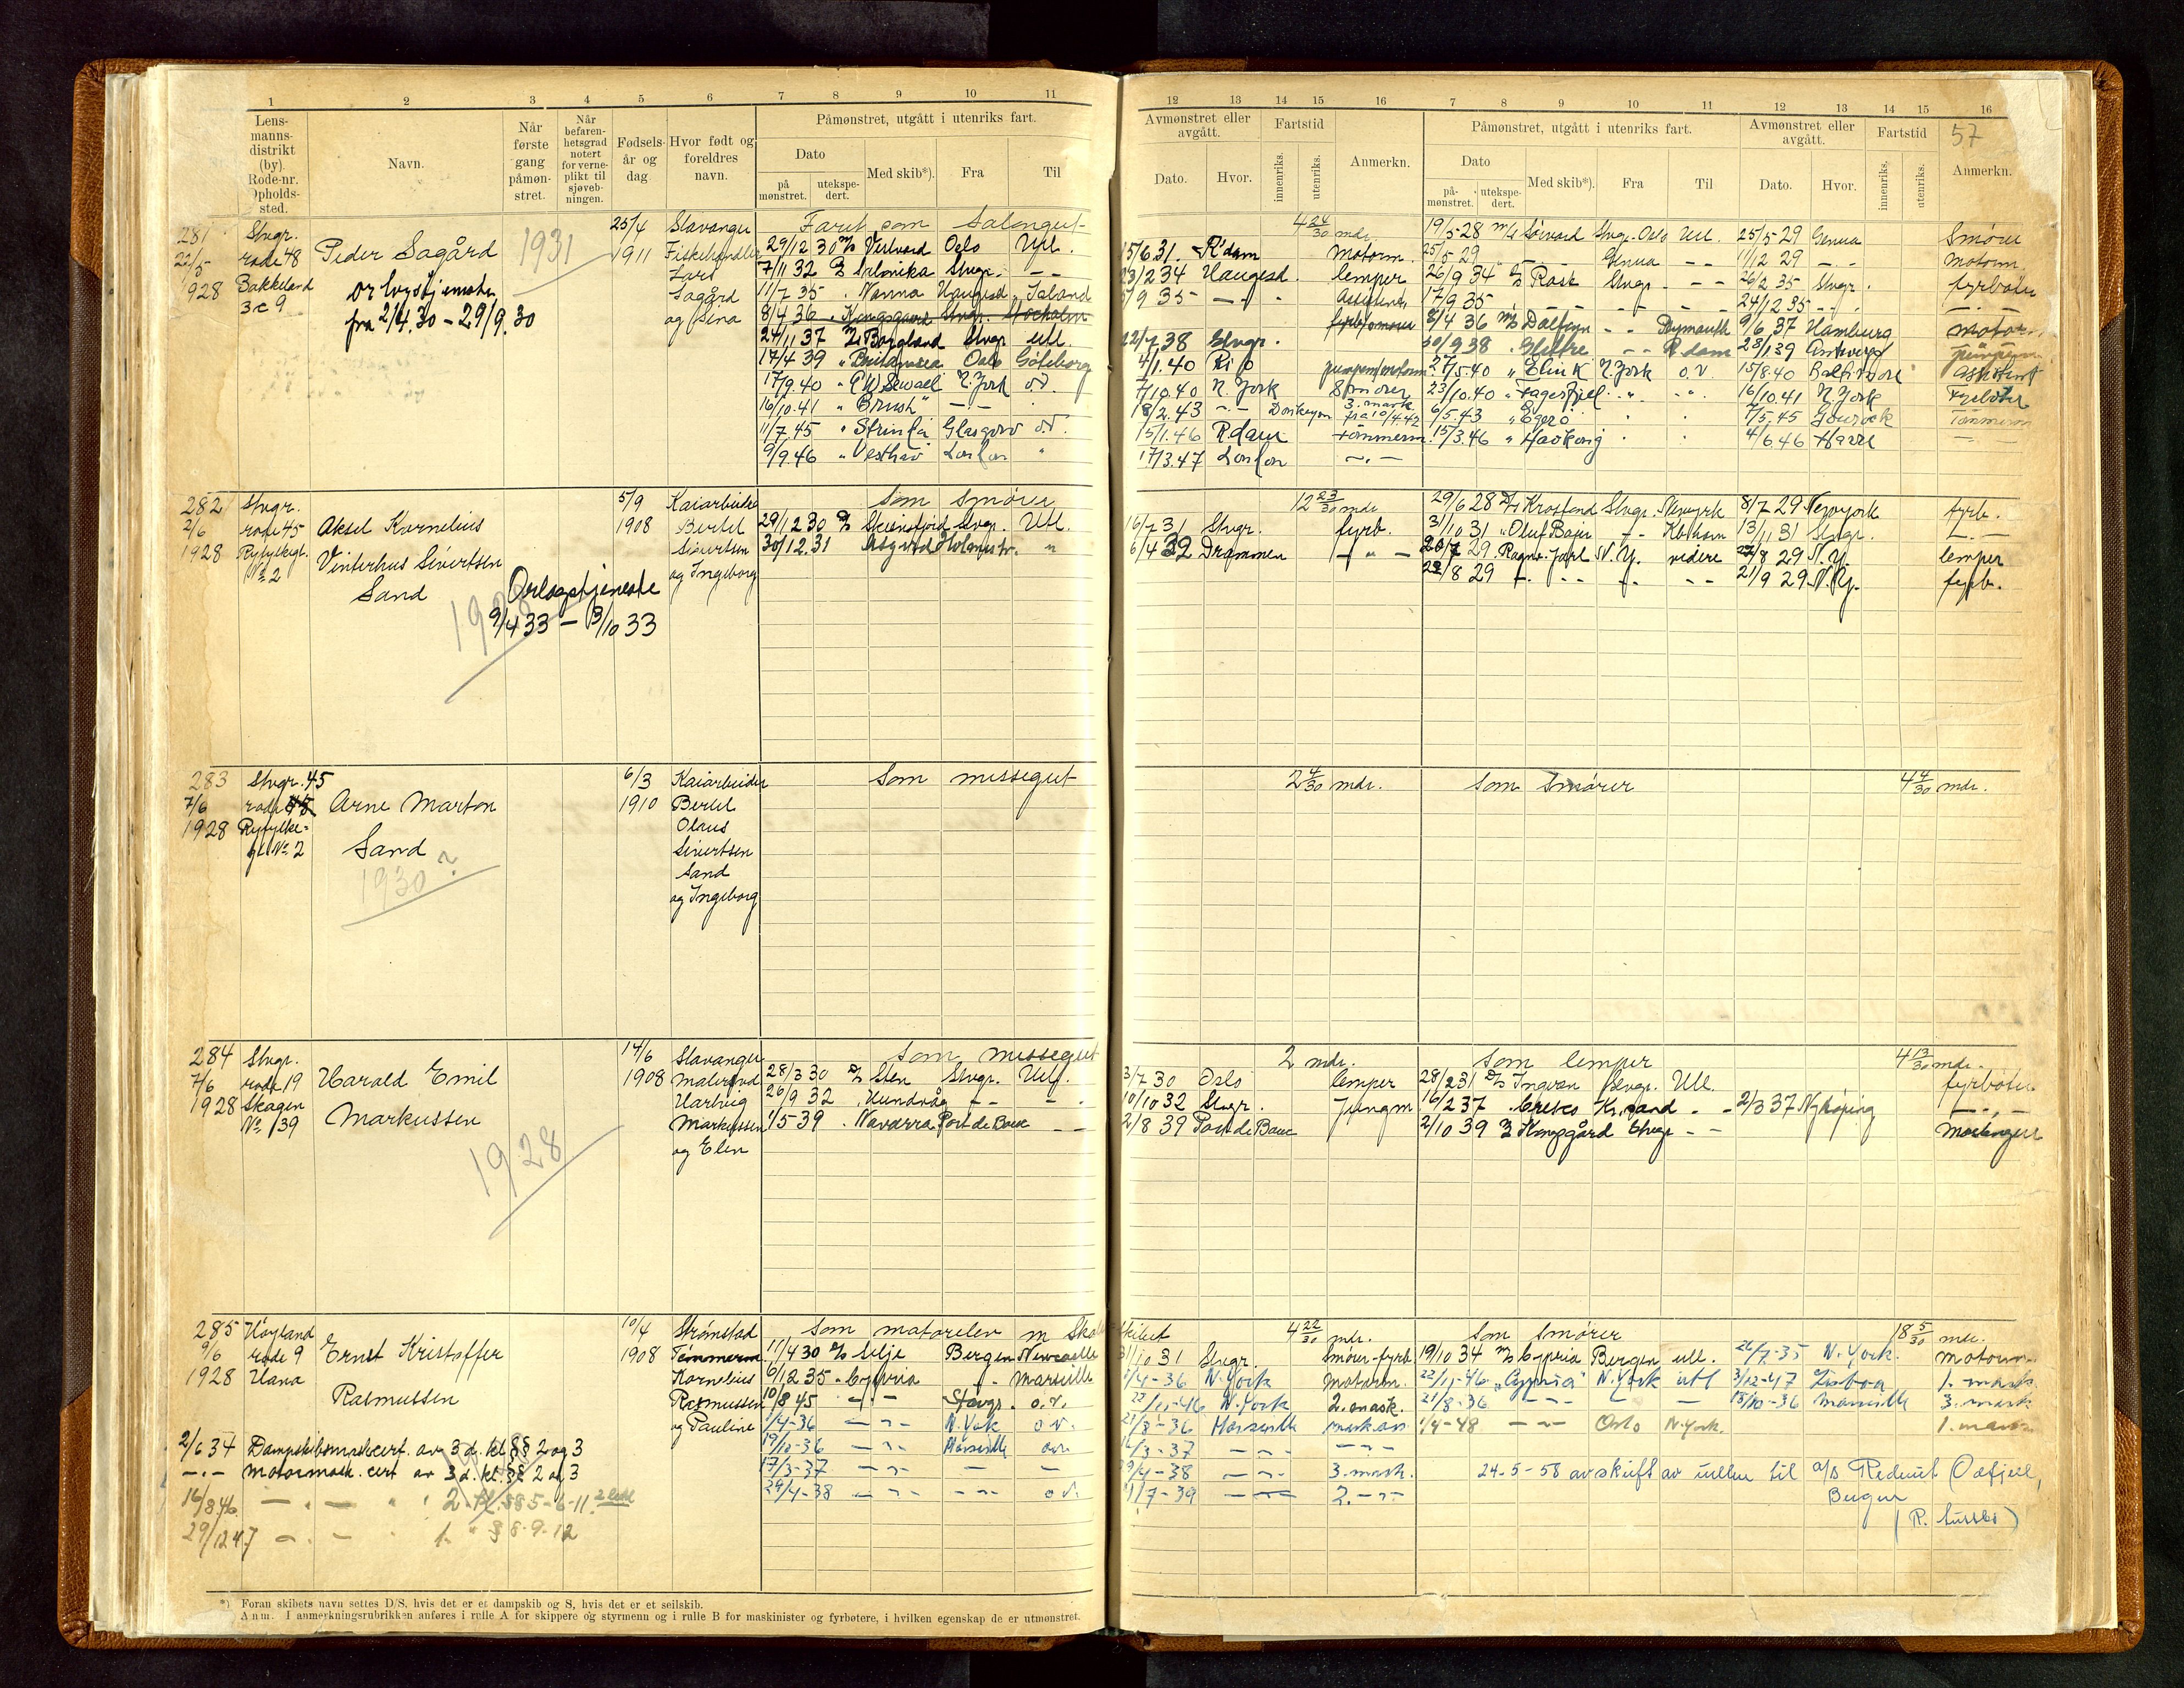 1 2 3 4 5 6 7 8 9 10 11
Lens-
manns-
distrikt
(by).
Rode-nr.
Opholds-
sted.
Navn.
Når
første
gang
påmøn-
stret.
Når
befaren-
hetsgrad
notert
for verne-
plikt til
sjøveb-
ningen.
Fødsels-
år og
dag
Hvor født og
foreldres
navn.
Påmønstret, utgått i utenriks fart.
Dato
på
mønstret.
utekspe-
dert.
Med skib*).
Fra
Til
281 Stvgr. 25/4 Stavanger Farit som Salongut-
22/5 rode 48 Peder Sagård 1931 1911 Fiskehandler 29/12 30 M/S Oslo Utl.
1928 Bakkeland Lars 7/11 32 D/S Salonika Stvgr. - -
3c 9 Sagård 11/7 35 " Nanna Haugesd " Island
fra 2/4.30 - 29/9.30 og Sina 8/4 36 " Kongsgaard Stvgr. Stockholm
24/11 37 Borgland Stvgr Utl.
17/4 39 Oslo Göteborg
17/9.40 " E W Sewall N. York o.v.
16/10.41 " Brush" - . -
11/7.45 " Strinda Glasgow o.v.
9/9.46 " Vesthav London "
282 Stvgr. 5/9 Kaiarbeider Som Smører
2/6 rode 45 Aksel Kornelius 1908 Bertel 29/12 30 D/S Skiensfjord Stvgr. Utl.
1928 Ryfylkegt. Vinterhus Sivertsen Sivertsen 30/12.31 Holmestr. "
No 2 Sand Orlogstjeneste og Ingeborg
1928 9/4 33 - 3/10 33
283 Stvgr. 45 6/3 Kaiarbeider Som messegut
7/6 rode 48 Arne Marton 1910 Bertel
1928 Ryfylke- Olaus
gt. No 2 Sand Sivertsen
1930? Sand
og Ingeborg
284 Stvgr. 14/6 Stavanger Som messegut
7/6 rode 19 Harald Emil 1908 Malersvd 28/3 30 D/S Sten Stvgr. Utl.
1928 Skagen Hartvig 26/9 32 " Hundvåg - - -
No 39 Markussen Markussen 1/5 39 " Navarra Port de Bouc - -
1928 og Elen
285 Høyland 10/4 Strømstad Som motorelev m Skol
9/6 rode 9 Ernst Kristoffer 1908 Tømmerm. 11/4 30 D/S Silje Bergen Newcastle
1928 Hana Kornelius 6/12 35 " Cypria - " - Marseille
Rasmussen Rasmussen 10/8 45 - " - Stavgr. o.v.
og Pauline 1/4-36 - " - N. York o.v.
2/6 34 Dampskibsmaskcert. av 3 d. kl. §§ 2 og 3 19/10-36 - " - Marseille o.v.
- . - Motormask. cert av 3 d. kl. §§ 2 og 3 17/3-37 - " - - -
16/8 46 - . - " " 2. kl. §§ 5-6-11. 29/4-38 - " - - " - o.v.
29/12 47 - . - " 1. " § 8-9-12
*) Foran skibets navn settes D/S, hvis det er et dampskib og S, hvis det er et seilskib.
Anm. I anmerkningsrubrikken anføres i rulle A for skippere og styrmenn og i rulle B for maskinister og fyrbøtere, i hvilken egenskap de er utmønstret.
12 13 14 15 16 7 8 9 10 11 12 13 14 15 16
57
Avmønstret eller
avgått.
Fartstid
Dato.
Hvor.
innenriks.
utenriks.
Anmerkn.
Påmønstret, utgått i utenriks fart.
Dato
på-
mønstret.
utekspe-
dert.
Med skib*).
Fra
Til
Avmønstret eller
avgått.
Fartstid
Dato.
Hvor.
innenriks.
utenriks.
Anmerkn.
4 24/30 mdr. 19/5-28 M/S Stvgr. Oslo Utl. 25/5-29 Genua Smører
15/6 31. R'dam Motorm. 25/5-29 Genua - - 11/12 29 - . - motorm.
23/2 34 Haugesd. lemper 26/9 34 D/S Rask Stvgr - - 26/2 35 Stvgr. fyrbøter
5/9 35 - " - Assistent 17/9 35 - - - - 24/12 35 - . - - . -
8/4 36 M/S Dalfonn - - Plymouth 9/6 37 Hamburg motorm.
22/7 38 Stvgr. 30/9 38 " Glittre - - R.dam 28/1 39 Antwerp pumpem.
4/1.40 Rio 27/5.40 " Elin K N. York o.v. 15/8.40 Baltimore Assistent
7/10.40 N. York Smører 23/10.40 " Fagerfjell " " 16/10.41 N. York Fyrbøter
18/2.43 - - Donkeym 3. mask. fra 10/4.42 6/5.43 " Egerø " 7/5.45 Gourock Tømmerm
15/1.46 R.dam Tømmerm. 15/3.46 " Haukong " 4/6.46 Havre - -
17/3.47 London - . -
12 23/30 mdr 29/6 28 D/S Krosfond Stvgr. Newyork 8/7 29 Newyork fyrb.
16/7 31 Stvgr. fyrb. 31/10 31 " Oluf Bajer - " - Kbhavn 13/11 31 Stvgr. - . -
6/4 32 Drammen - " - 20/7 29 " Ragnv. Jarl N. Y. videre 22/8 29 N. Y. lemper
22/8 29 - " - - - - " - - - 21/9 29 N. Y. fyrb.
2 4/30 mdr. Som Smører 4 4/30 mdr.
2 mdr. Som lemper 4 13/30 mdr.
3/7 30 Oslo lemper 28/2 31 D/S Ingvan Stvgr. Utl. fyrbøter
10/10 32 Stvgr. Jungm 16/2 37 " Kr.sand - - 2/3 37 Nykøping - " -
2/8 39 Port de Bouc 2/10 39 D/S Kongsgård Stvgr - -
Skibet 4 22/30 mdr. Som Smører 18 5/30 mdr.
31/10 31 Stvgr. Smører-fyrb 19/10 34 M/S Cypria Bergen utl. 26/7-35 N. York. motorm.
1/4-36 N. York Motorm. 22/11-46 " Cypria" N. York utl 3/12-47 Lisboa 1. mask.
22/11-46 N. York 2. mask. 21/8-36 - " - - - 13/10-36 Marseille 3. mask
21/8-36 Marseille mask.ass 1/4-48 - " - Oslo N. York. 1. mask
16/3-37 - " - - " -
29/4-38 - " - 3. mask. 24-5-58 avskrift av rullen til a/s Rederiet Odfjell,
1/7-39 - " - 2. - " - Bergen